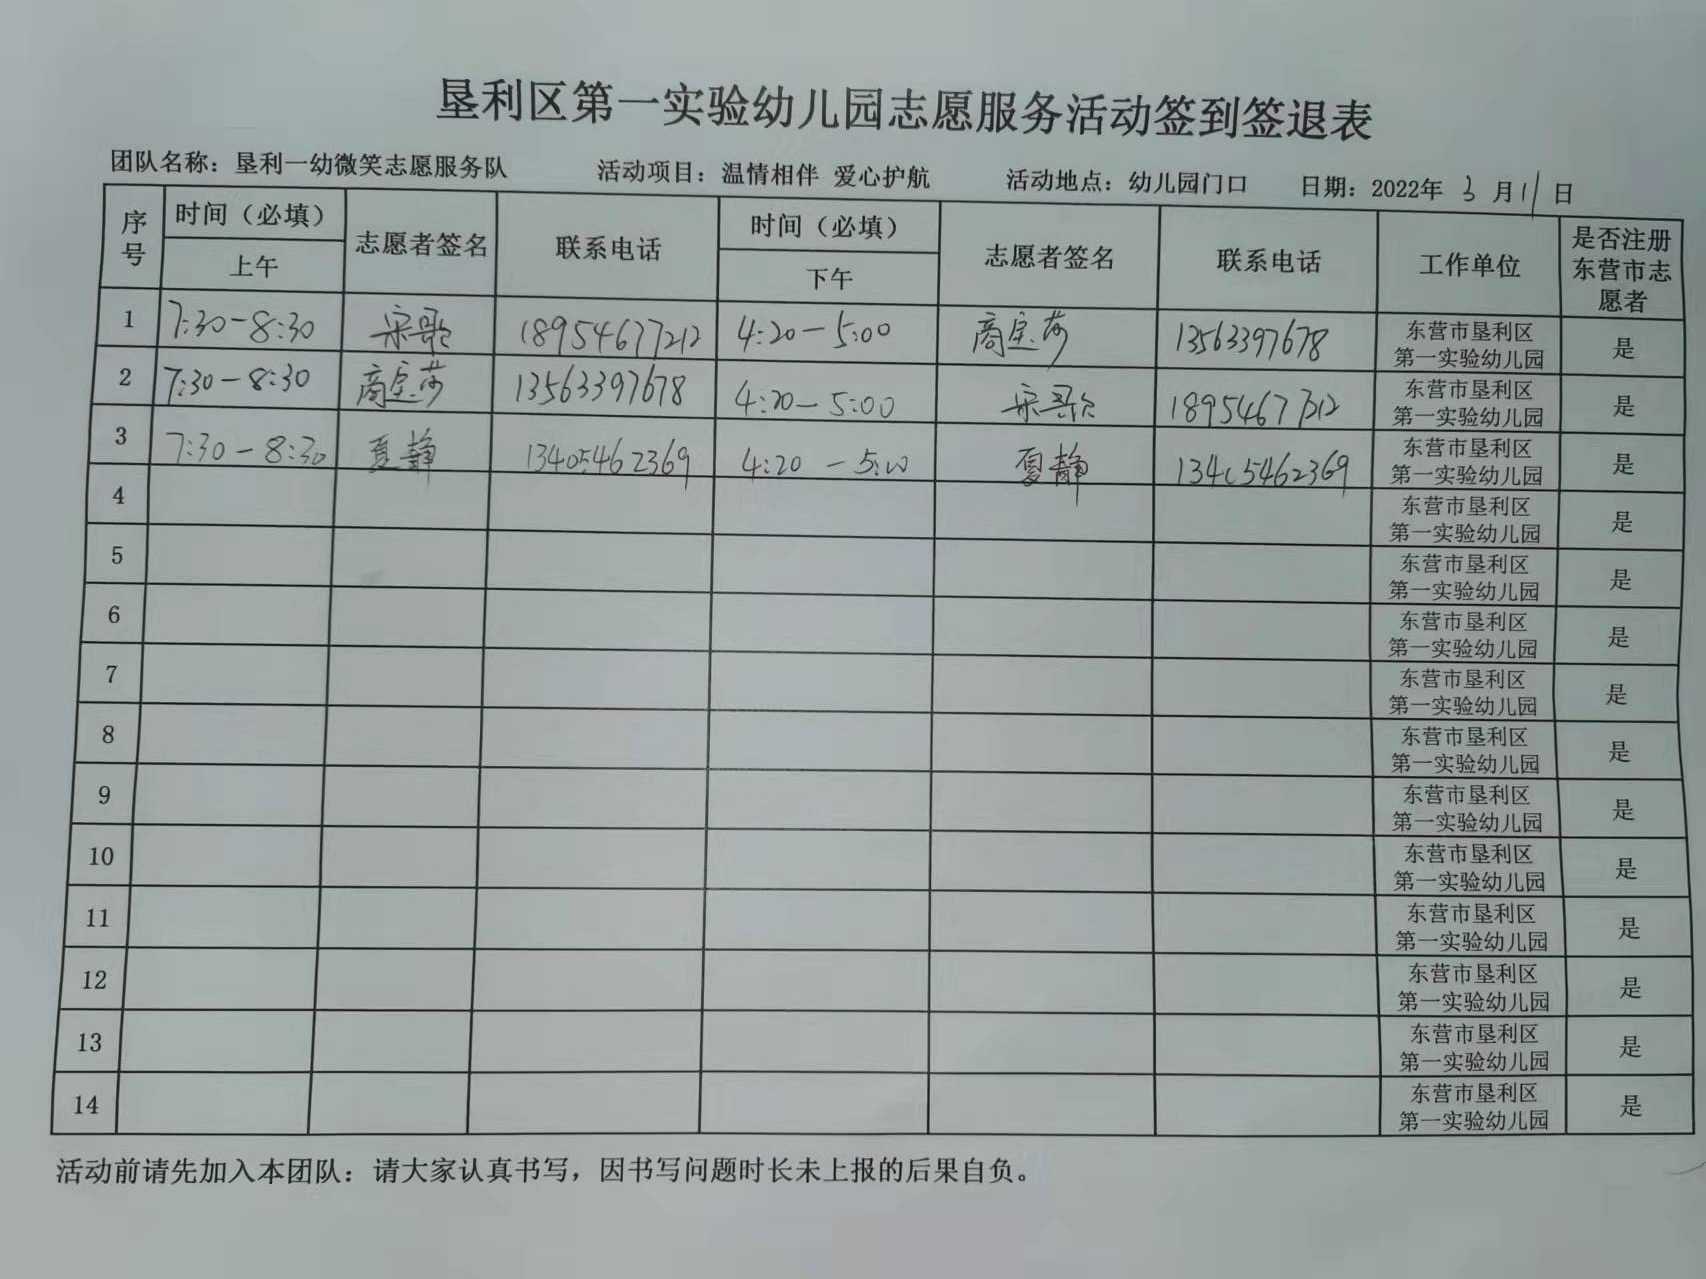 垦利区第一实验幼儿园志愿服务活动签到签退表
团队名称：垦利一幼微笑志愿服务队 活动项目：温情相伴 爱心护航 活动地点：幼儿园门口 日期：2022年 3 月 11 日
序号 时间（必填） 上午 志愿者签名 联系电话 时间（必填） 下午 志愿者签名 联系电话 工作单位 是否注册东营市志愿者
1 7:30-8:30 宋歌 18954677212 4:20-5:00 商 莎 13563397678 东营市垦利区第一实验幼儿园 是
2 7:30-8:30 商 莎 13563397678 4:20-5:00 宋歌 18954677212 东营市垦利区第一实验幼儿园 是
3 7:30-8:30 夏静 13405462369 4:20-5:00 夏静 13405462369 东营市垦利区第一实验幼儿园 是
4 东营市垦利区第一实验幼儿园 是
5 东营市垦利区第一实验幼儿园 是
6 东营市垦利区第一实验幼儿园 是
7 东营市垦利区第一实验幼儿园 是
8 东营市垦利区第一实验幼儿园 是
9 东营市垦利区第一实验幼儿园 是
10 东营市垦利区第一实验幼儿园 是
11 东营市垦利区第一实验幼儿园 是
12 东营市垦利区第一实验幼儿园 是
13 东营市垦利区第一实验幼儿园 是
14 东营市垦利区第一实验幼儿园 是
活动前请先加入本团队：请大家认真书写，因书写问题时长未上报的后果自负。